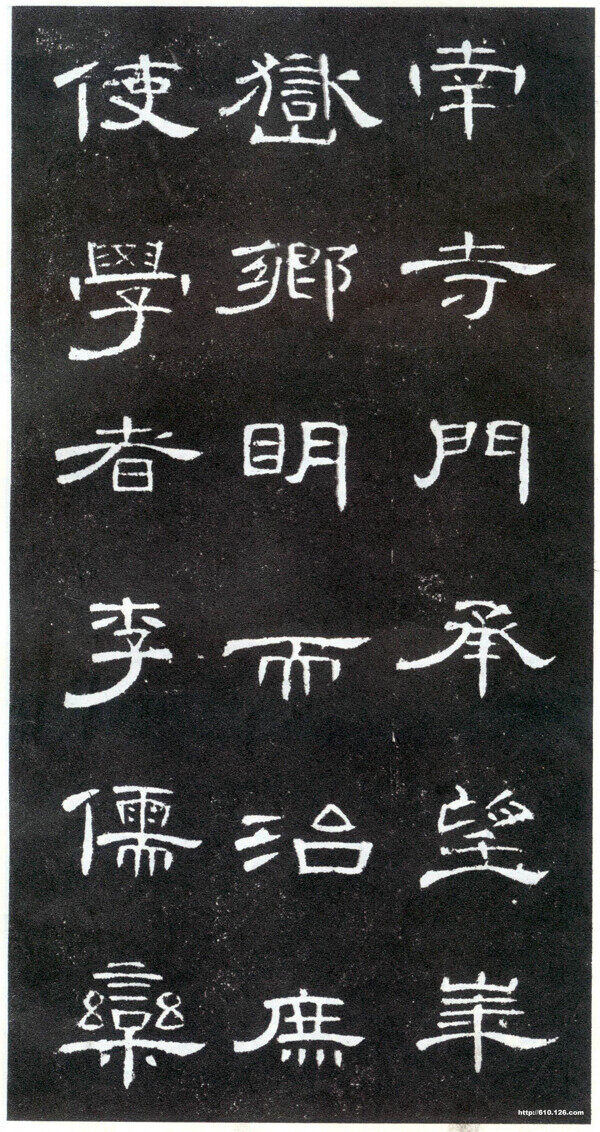 南寺門承望華
嶽鄉明而治庶
使學者李儒欒
http://610.126.com